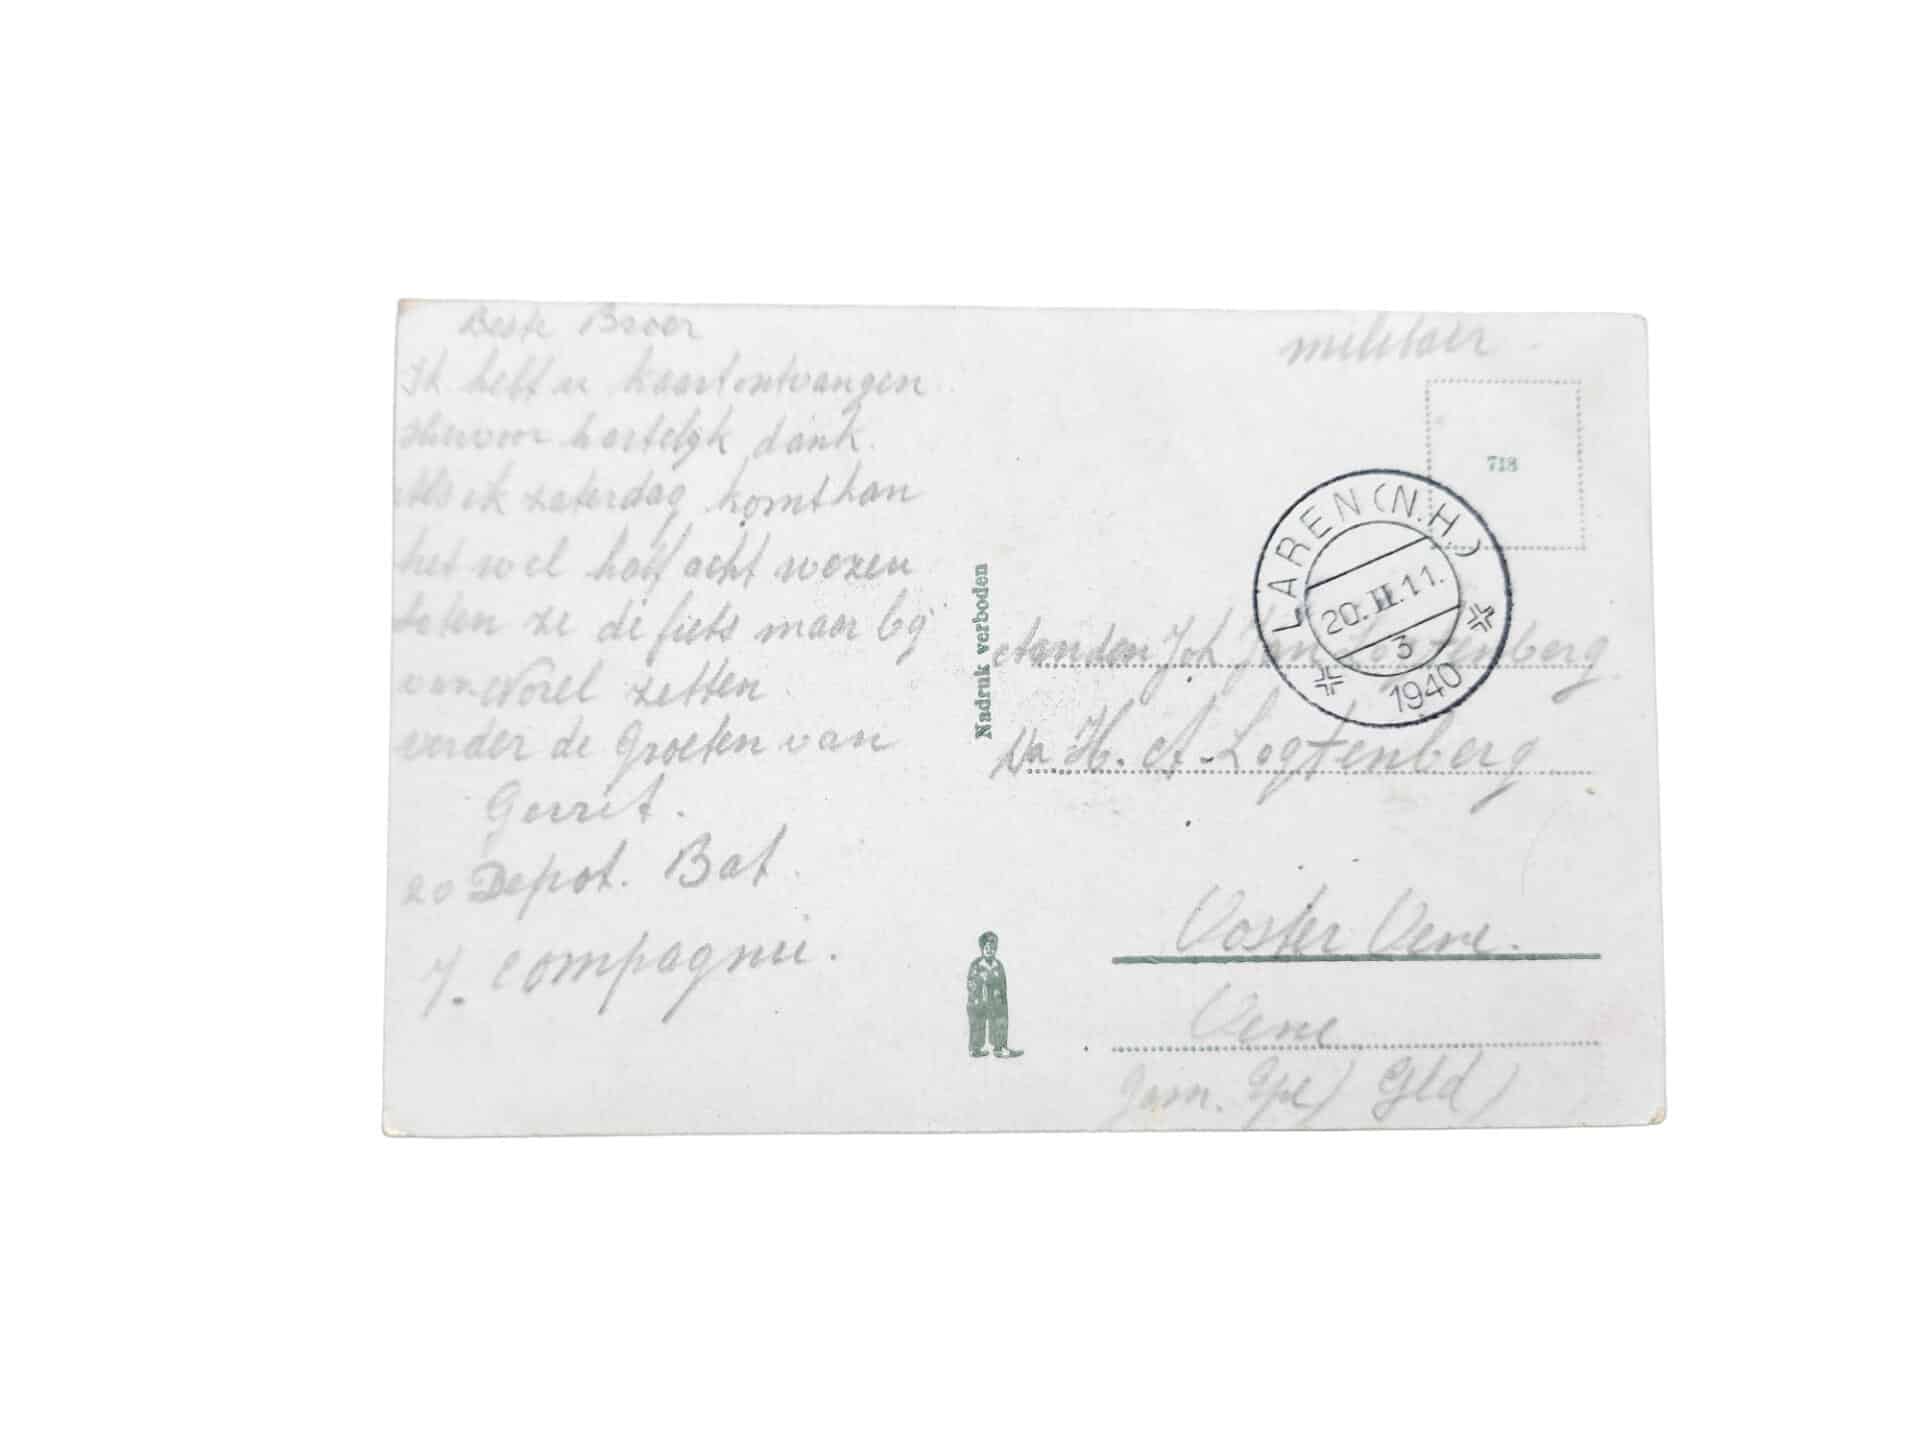 Beste Broer
Ik heb u kaart ontvangen
Hiervoor hartelijk dank.
Als ik zaterdag komt kan
het wel half acht wezen
laten ze de fiets maar bij
zetten
verder de Groeten van
Gerrit.
20 Depot. Bat.
7. compagnie.
Nadruk verboden
militair
718
LAREN (N.H.)
20.II.11.
3
1940
Aan den Jan Logtenberg
H. A. Logtenberg
Ooster Oene.
Oene
Gem. Epe) Gld)